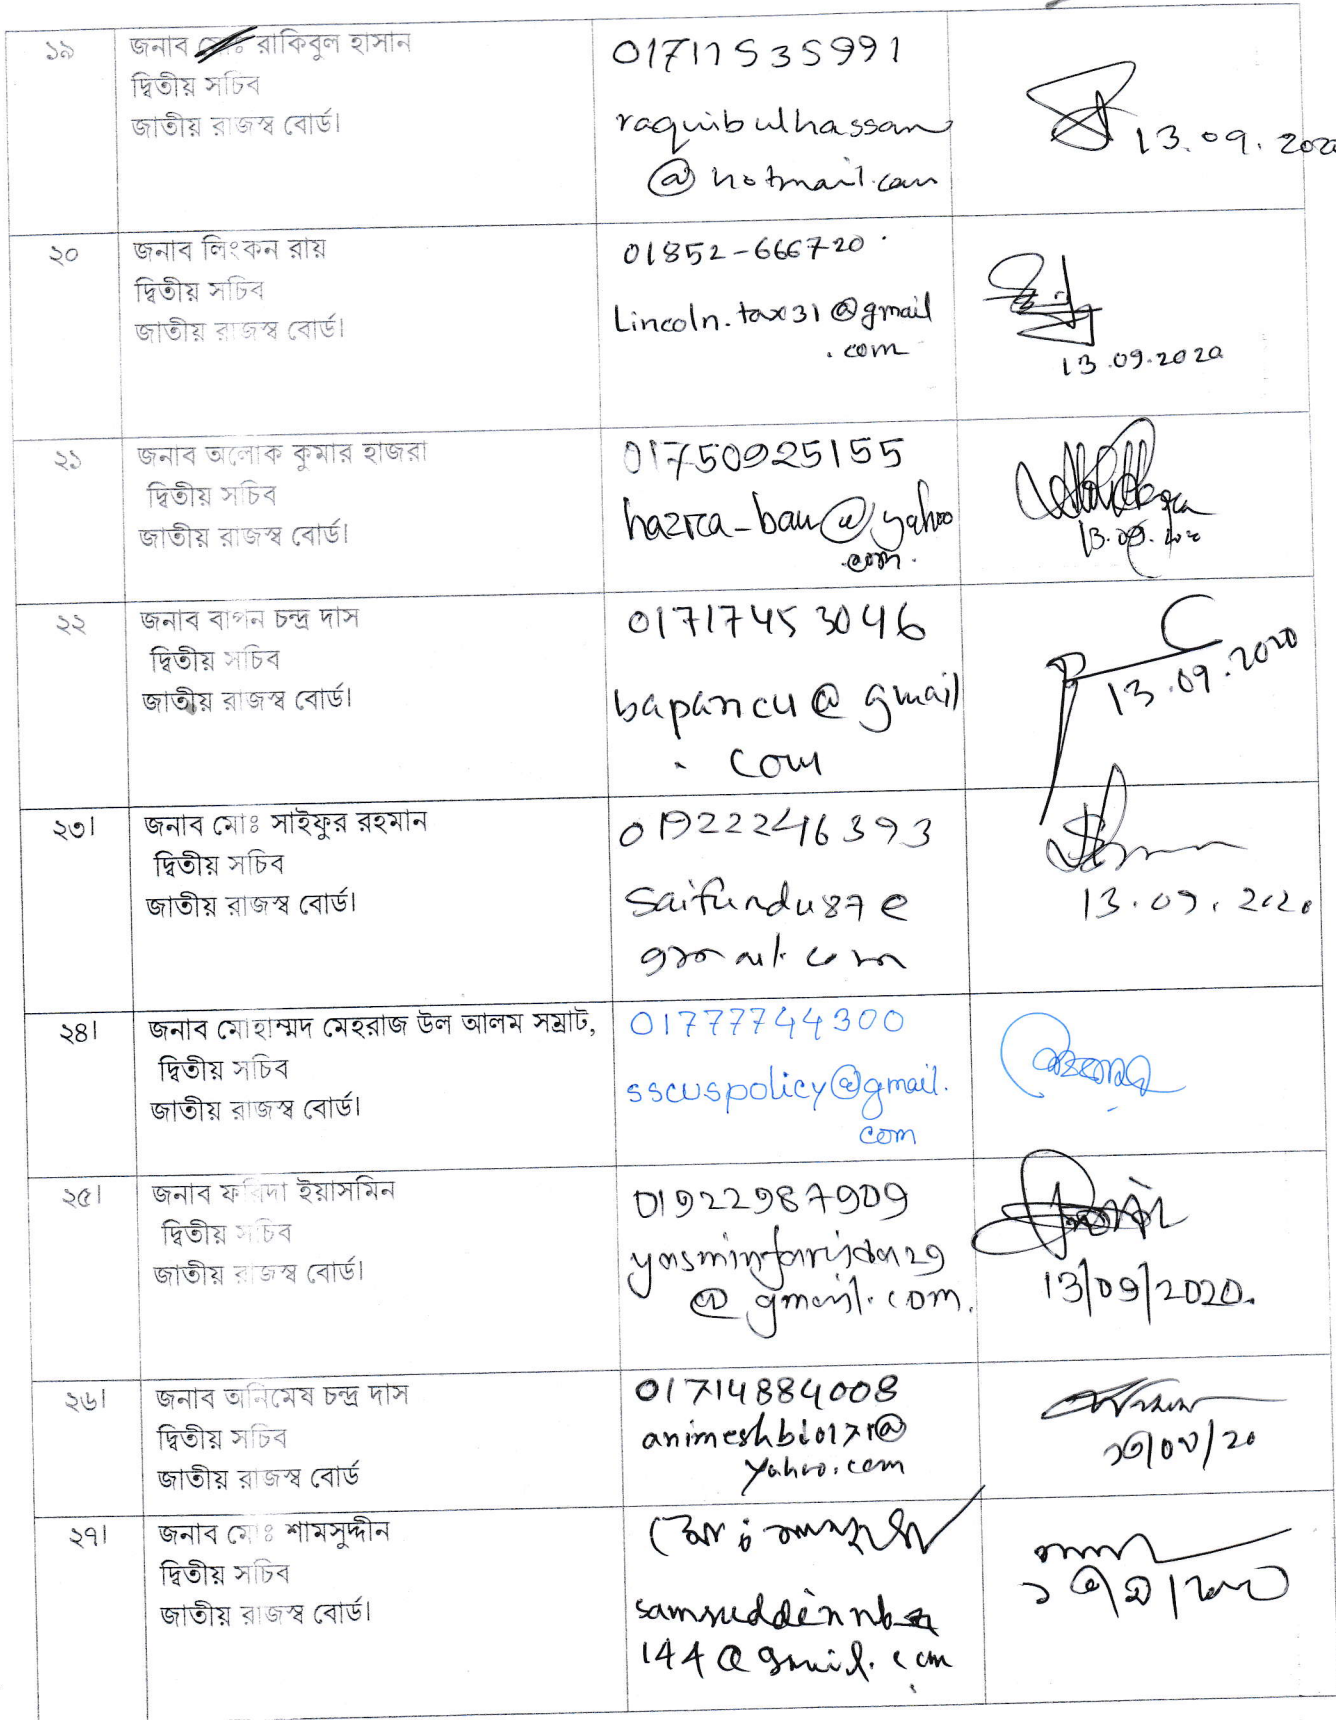 ১৯
জনাব রাকিবুল হাসান
দ্বিতীয় সচিব
জাতীয় রাজস্ব বোর্ড।
01711535991
raquibulhassan
@hotmail.com
13.09.2020
২০
জনাব লিংকন রায়
দ্বিতীয় সচিব
জাতীয় রাজস্ব বোর্ড।
01852-666720
Lincoln.tax31@gmail
.com
13.09.2020
২১
জনাব অলোক কুমার হাজরা
দ্বিতীয় সচিব
জাতীয় রাজস্ব বোর্ড।
01750925155
hazra_bau@yahoo
.com.
13.09.2020
২২
জনাব বাপন চন্দ্র দাস
দ্বিতীয় সচিব
জাতীয় রাজস্ব বোর্ড।
01717453046
bapancu@gmail
.com
13.09.2020
২৩।
জনাব মোঃ সাইফুর রহমান
দ্বিতীয় সচিব
জাতীয় রাজস্ব বোর্ড।
01922246393
saifurdu87@
gmail.com
13.09.2020
২৪।
জনাব মোহাম্মদ মেহরাজ উল আলম সম্রাট,
দ্বিতীয় সচিব
জাতীয় রাজস্ব বোর্ড।
01777744300
sscuspolicy@gmail.
com
২৫।
জনাব ফরিদা ইয়াসমিন
দ্বিতীয় সচিব
জাতীয় রাজস্ব বোর্ড।
01922987909
yasminfarida29
@gmail.com.
13/09/2020.
২৬।
জনাব অনিমেষ চন্দ্র দাস
দ্বিতীয় সচিব
জাতীয় রাজস্ব বোর্ড
01714884008
animeshbio171@
yahoo.com
১৩/০৯/২০
২৭।
জনাব মোঃ শামসুদ্দীন
দ্বিতীয় সচিব
জাতীয় রাজস্ব বোর্ড।
144@gmail.com